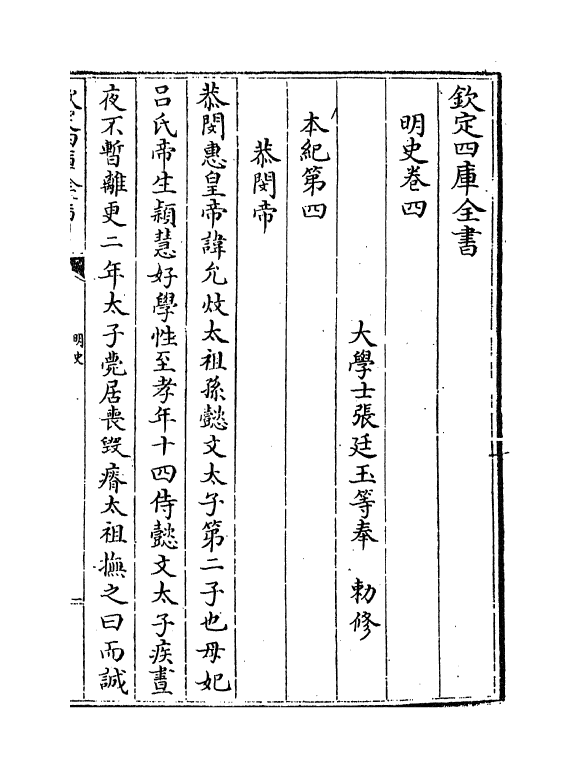 欽定四庫全書
明史卷四
大學士張廷玉等奉　勅修
本紀第四
恭閔帝
恭閔惠皇帝諱允炆太祖孫懿文太子第二子也母妃
呂氏帝生穎慧好學性至孝年十四侍懿文太子疾晝
夜不暫離更二年太子薨居喪毀瘠太祖撫之曰而誠
明史